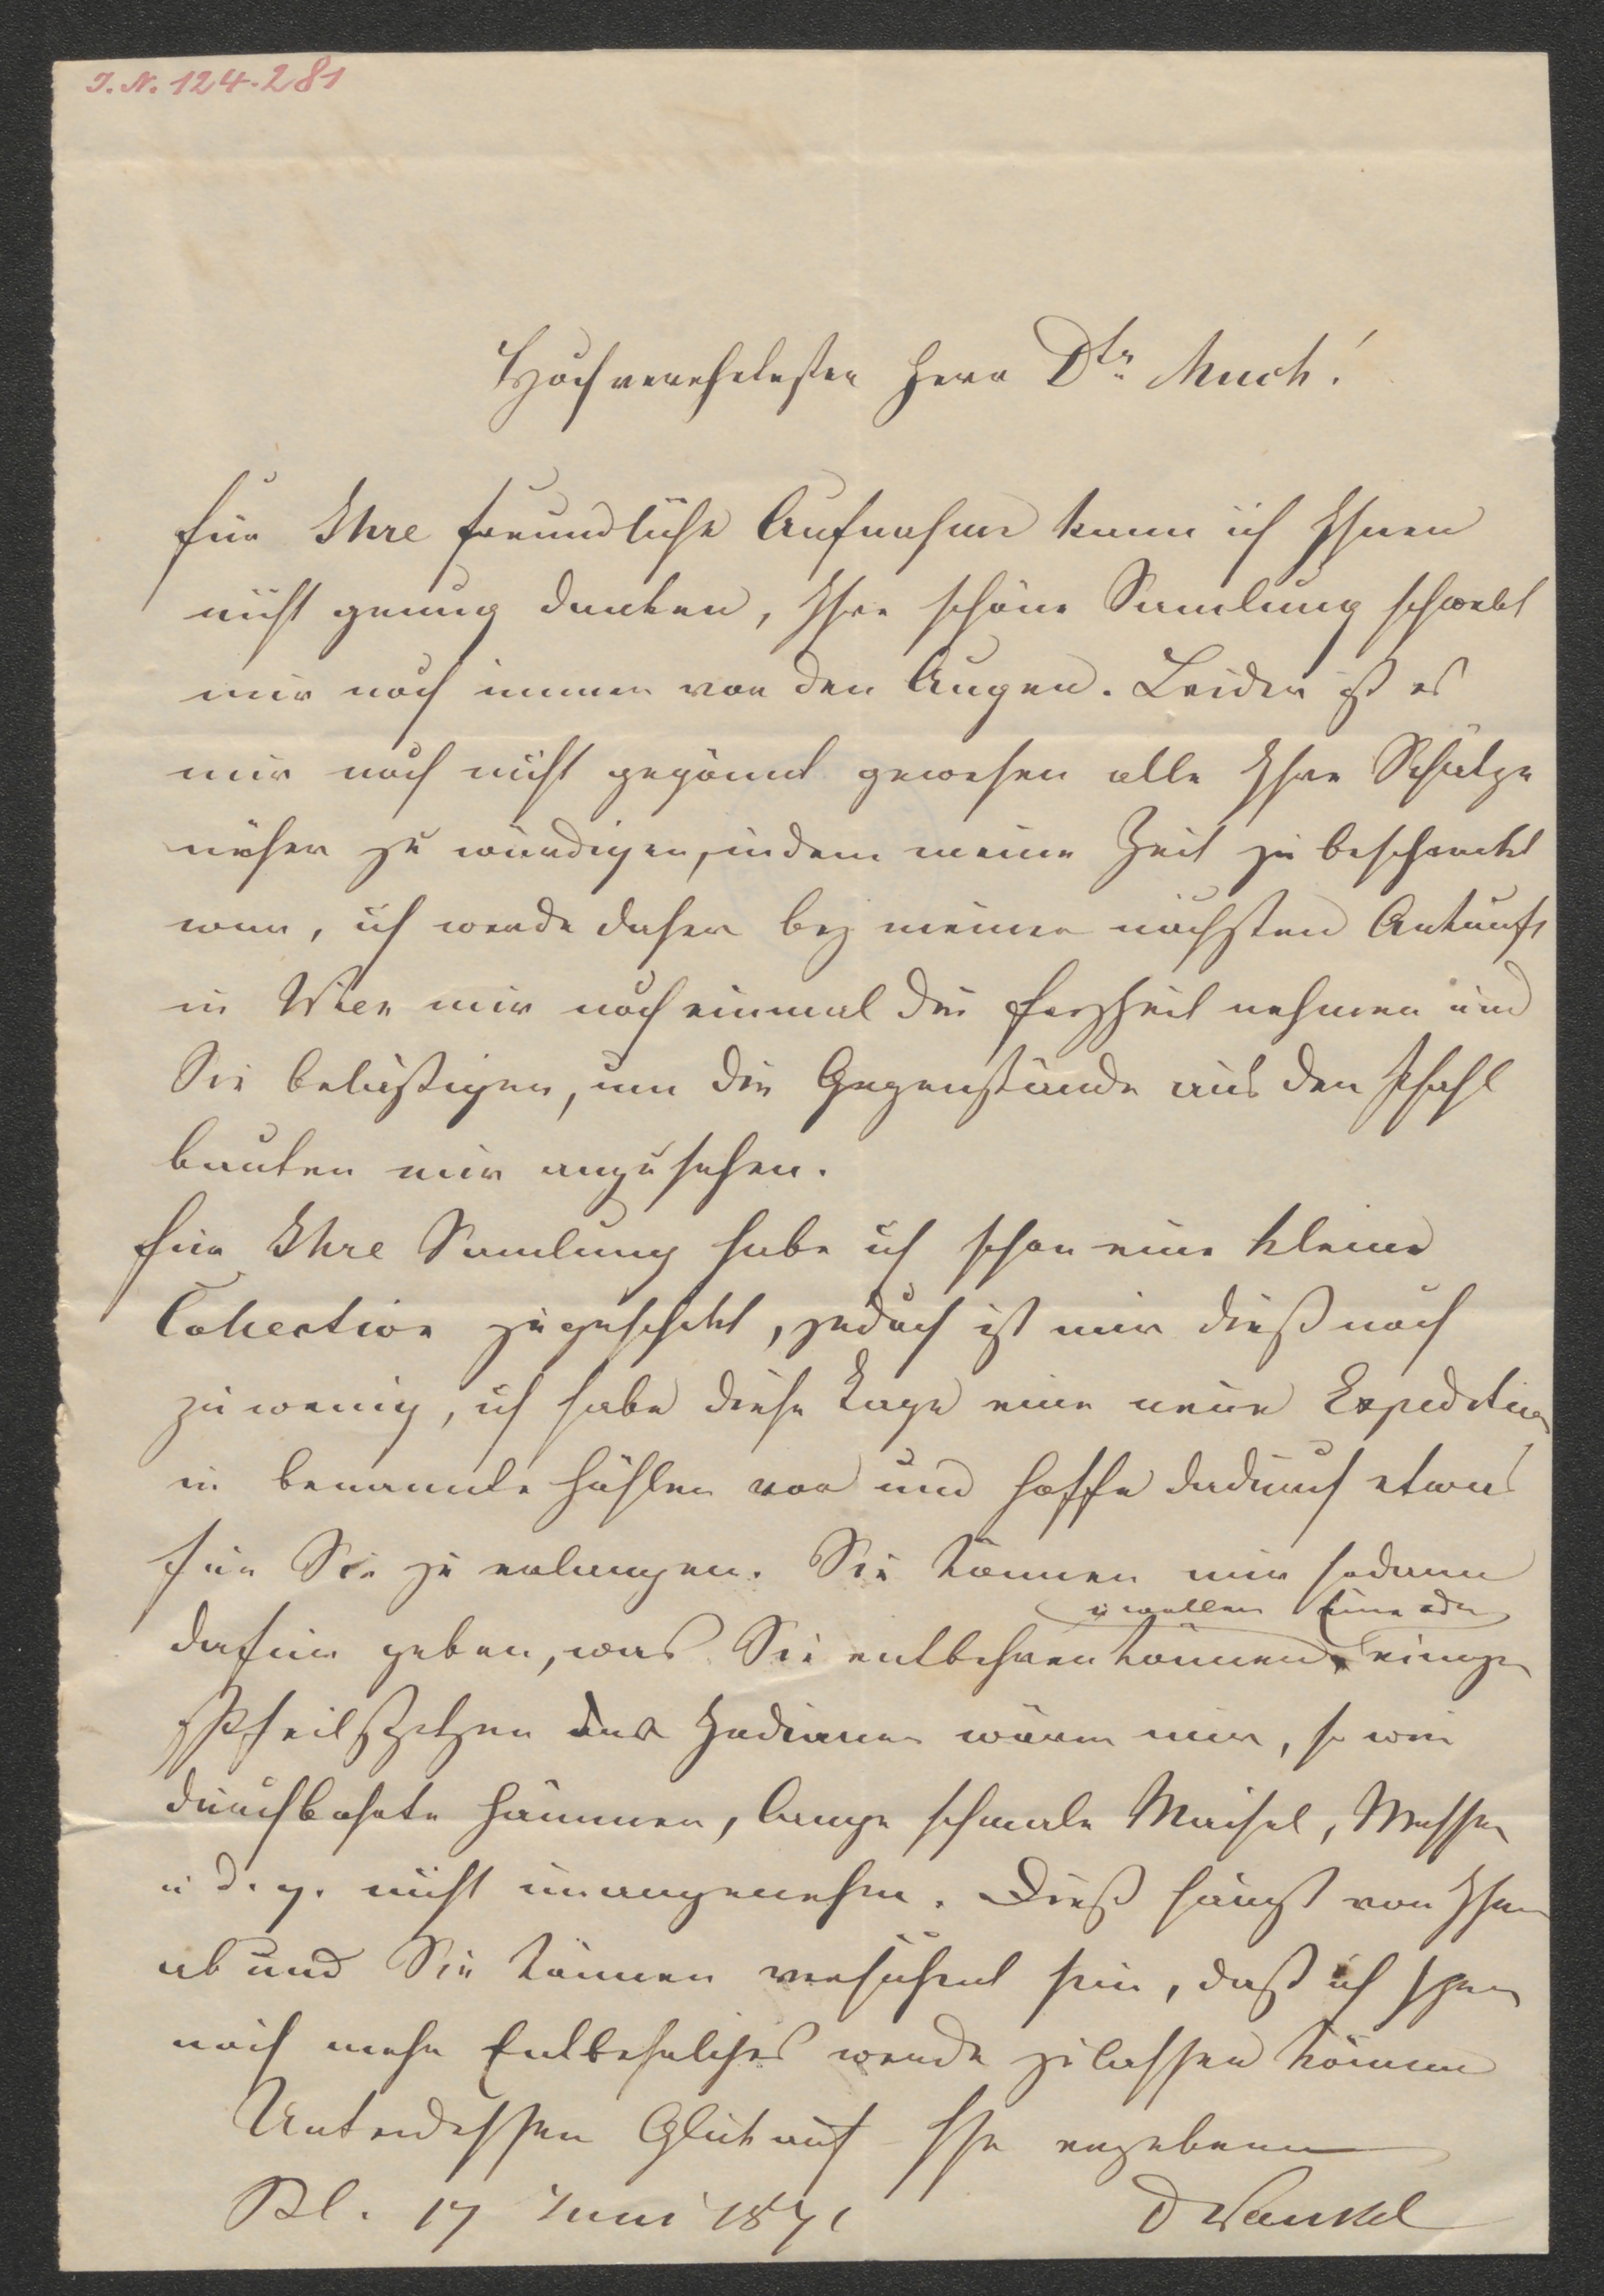 I. N. 124.281
Hochverehrtester Herr Dtr. Much!
für Ihre freundliche Aufnahme kann ich Ihnen
nicht genug danken, Ihre schöne Samlung schwebt
mir noch immer vor den Augen. Leider ist es
mir noch nicht gegönnt gewesen alle Ihre Schätze
näher zu würdigen, indem meine Zeit zu beschrankt
war, ich werde daher bey meiner nächsten Ankunft
in Wien mir noch einmal die Freyheit nehmen und
Sie belästigen, um die Gegenstände aus den Pfahl
bauten mir anzusehen.
Für Ihre Samlung habe ich schon eine kleine
Collection zugeschikt, jedoch ist mir dieß noch
zu wenig, ich habe diese Tage eine neue Expedition
in benannte Höhlen vor und hoffe dadurch etwas
für Sie zu erlangen. Sie können mir sodann
u wollen Eine oder
dafür geben, was Sie entbehren können einige
Pfeilspitzen der Indianer wären mir, so wie
durchbohrte Hämmer, lange schmale Maisel, Messer
u d. g. nicht unangenehm. Dieß hängt von Ihnen
ab und Sie können versichert sein, daß ich Ihnen
noch mehr Entbehrliches werde zulassen können
Unterdessen Glück auf Ihr ergebener
Bl. 17 Juni 1871
D Wankel